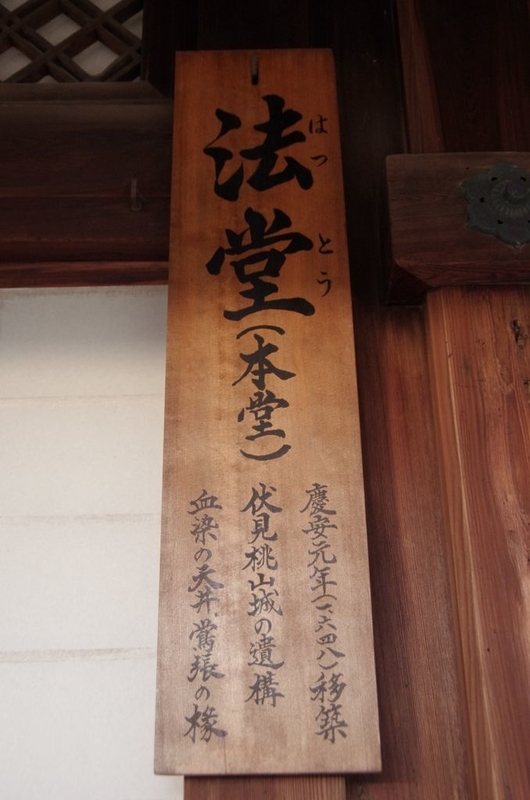 法堂(本堂)
はっとう
慶安元年(一六四八)移築
伏見桃山城の遺構
血染の天井鴬張の椽